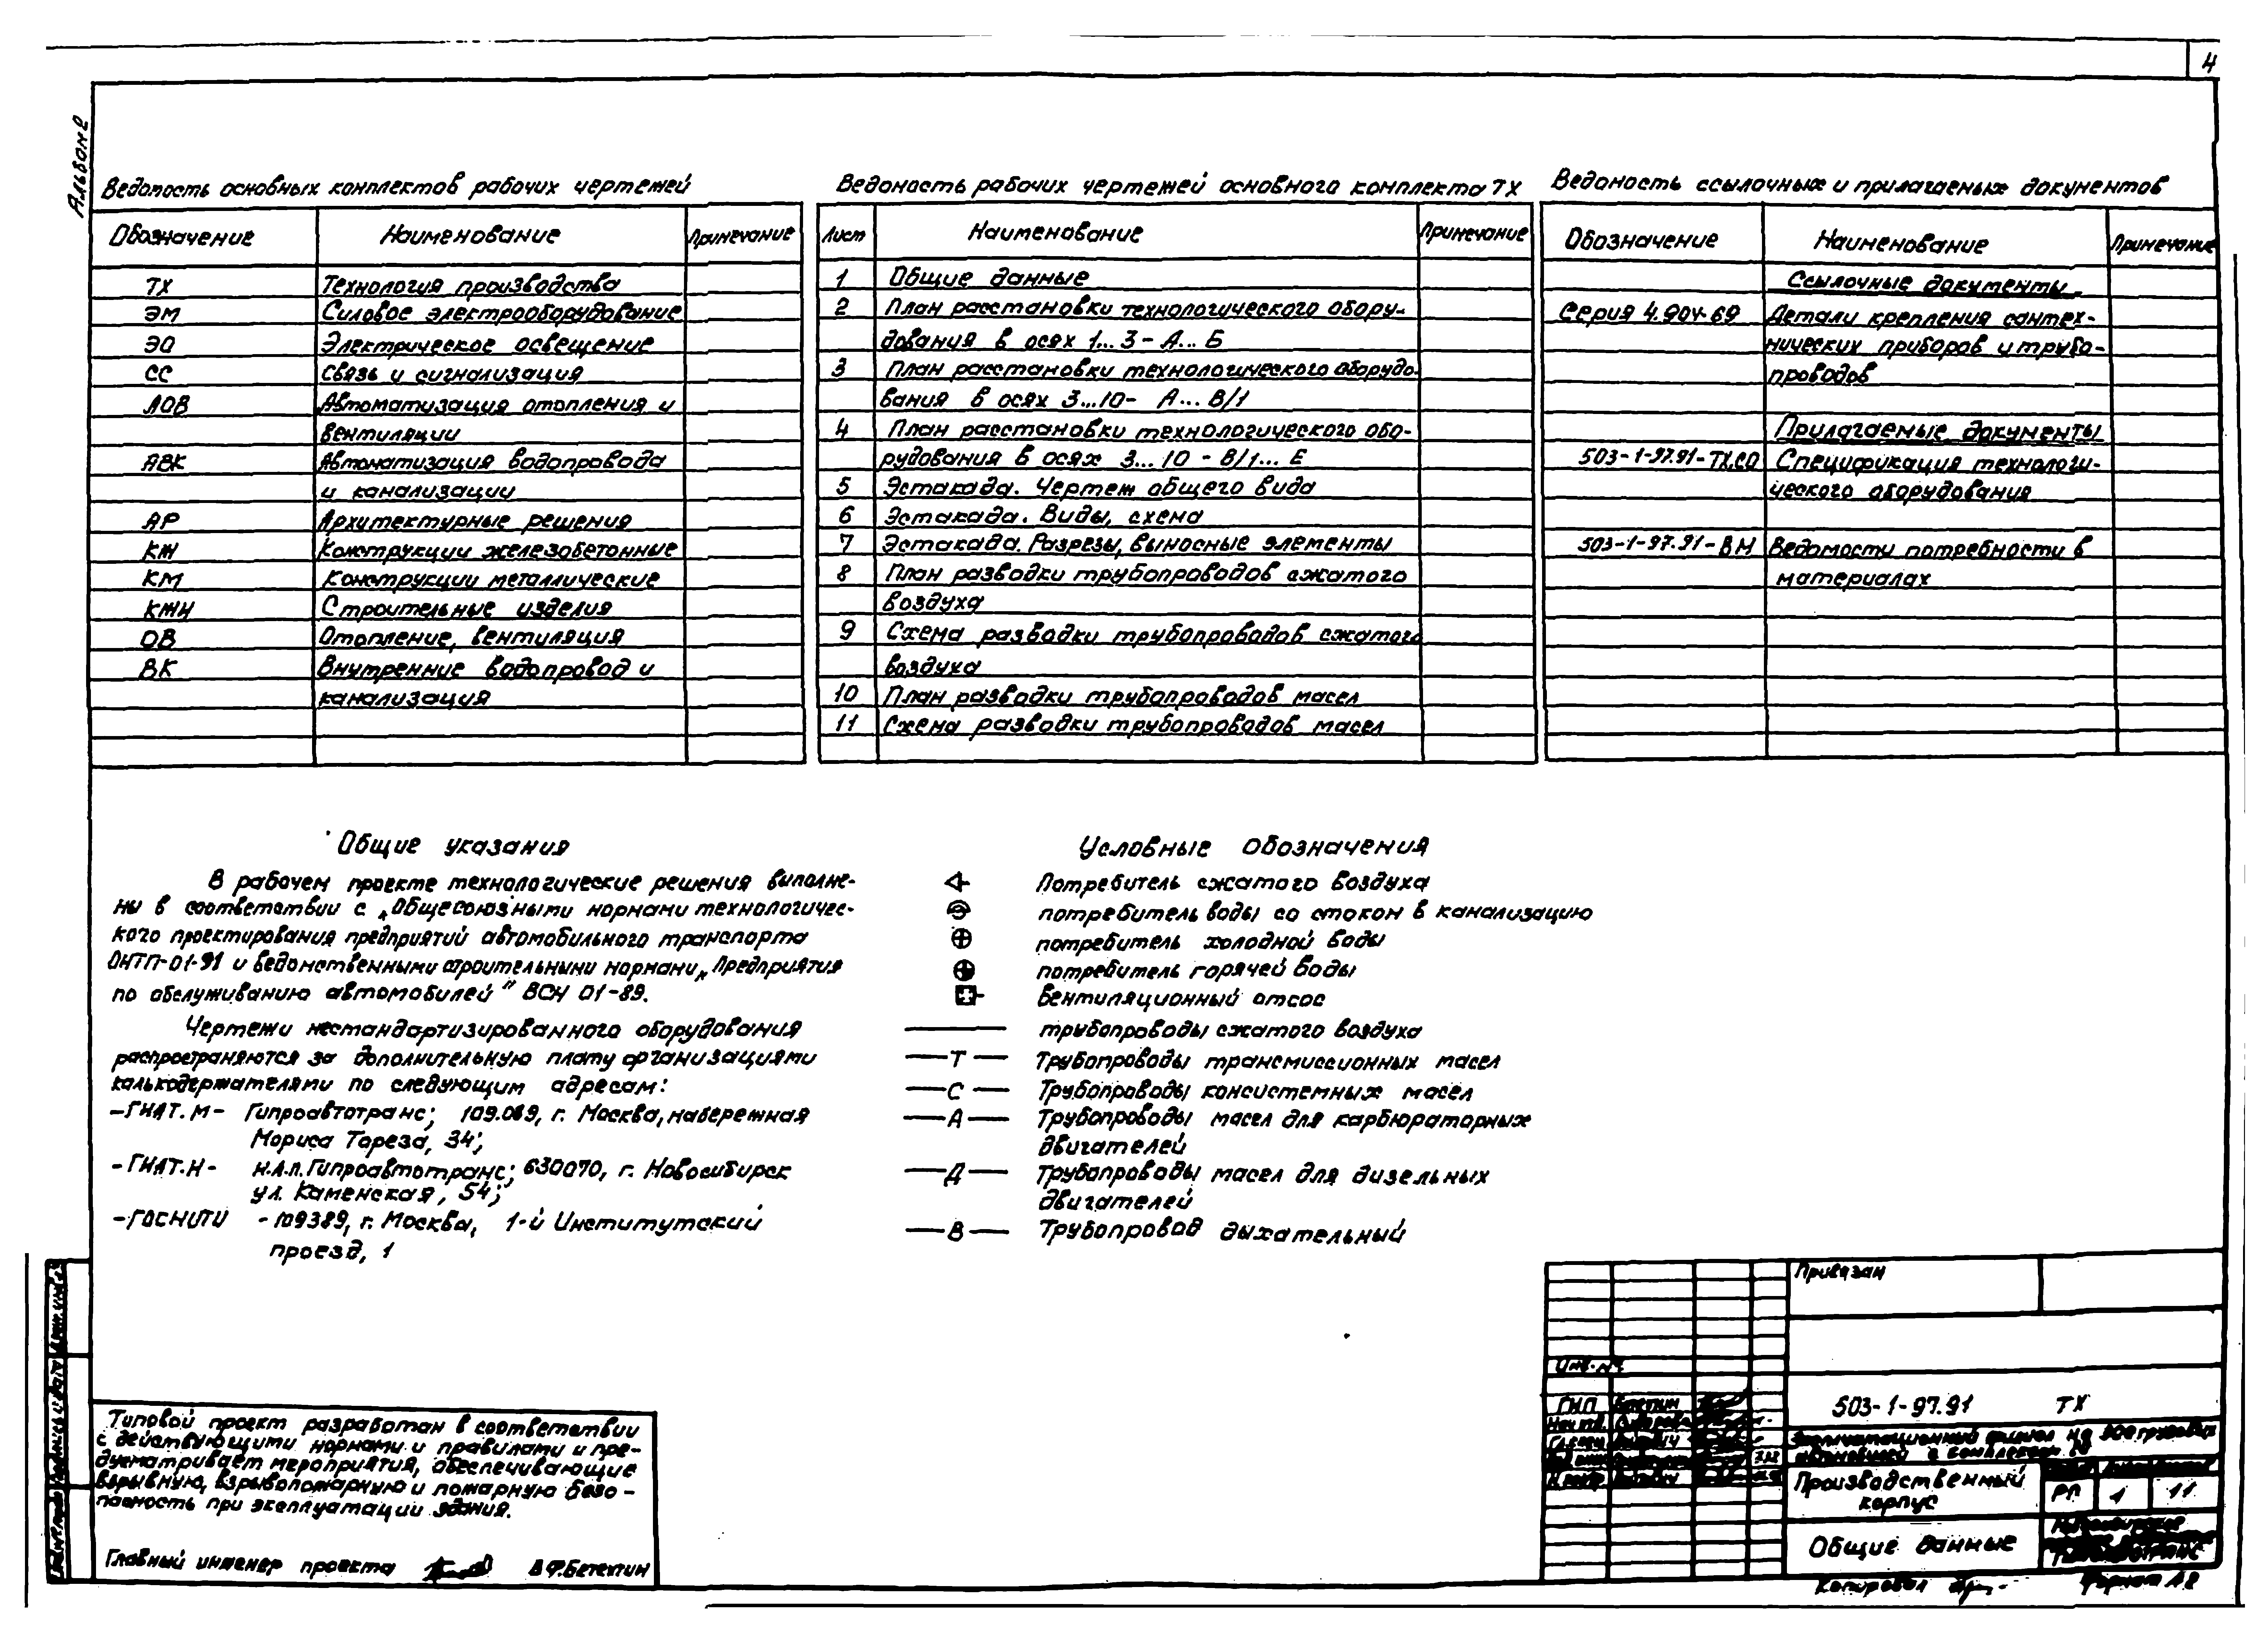 4
Альбом 2
Ведомость основных комплектов рабочих чертежей
Обозначение Наименование Примечание
ТХ Технология производства
ЭМ Силовое электрооборудование
ЭО Электрическое освещение
СС Связь и сигнализация
АОВ Автоматизация отопления и
вентиляции
АВК Автоматизация водопровода
и канализации
АР Архитектурные решения
КЖ Конструкции железобетонные
КМ Конструкции металлические
КЖИ Строительные изделия
ОВ Отопление, вентиляция
ВК Внутренние водопровод и
канализация
Ведомость рабочих чертежей основного комплекта ТХ
Лист Наименование Примечание
1 Общие данные
2 План расстановки технологического обору-
дования в осях 1...3 - А... Б
3 План расстановки технологического оборудо-
вания в осях 3...10- А... В/1
4 План расстановки технологического обо-
рудования в осях 3...10 - В/1... Е
5 Эстакада. Чертеж общего вида
6 Эстакада. Виды, схема
7 Эстакада. Разрезы, выносные элементы
8 План разводки трубопроводов сжатого
воздуха
9 Схема разводки трубопроводов сжатого
воздуха
10 План разводки трубопроводов масел
11 Схема разводки трубопроводов масел
Ведомость ссылочных и прилагаемых документов
Обозначение Наименование Примечание
Ссылочные документы
Серия 4.904-69 Детали крепления сантех-
нических приборов и трубо-
проводов
Прилагаемые документы
503-1-97.91-ТХ.СО Спецификация технологи-
ческого оборудования
503-1-97.91-ВМ Ведомости потребности в
материалах
Общие указания
В рабочем проекте технологические решения выполне-
ны в соответствии с „Общесоюзными нормами технологичес-
кого проектирования предприятий автомобильного транспорта
ОНТП-01-91 и ведомственными строительными нормами „Предприятия
по обслуживанию автомобилей" ВСН 01-89.
Чертежи нестандартизированного оборудования
распространяются за дополнительную плату организациями
калькодержателями по следующим адресам:
-ГИАТ.М- Гипроавтотранс; 109.089, г. Москва, набережная
Мориса Тореза, 34;
-ГИАТ.Н- Н.Ф.Гипроавтотранс; 630070, г. Новосибирск
ул. Каменская, 54;
-ГОСНИТИ - 109389, г. Москва, 1-й Институтский
проезд, 1
Условные обозначения
Потребитель сжатого воздуха
потребитель воды со стоком в канализацию
потребитель холодной воды
потребитель горячей воды
Вентиляционный отсос
трубопроводы сжатого воздуха
—Т— Трубопроводы трансмиссионных масел
—С— Трубопроводы консистемных масел
—А— Трубопроводы масел для карбюраторных
двигателей
—Д— Трубопроводы масел для дизельных
двигателей
—В— Трубопровод дыхательный
Типовой проект разработан в соответствии
с действующими нормами и правилами и пре-
дусматривает мероприятия, обеспечивающие
взрывную, взрывопожарную и пожарную безо-
пасность при эксплуатации здания.
Главный инженер проекта В.Ф.Бетехтин
Привязан
Инв. №
ГИП Бетехтин
503-1-97.91 ТХ
Эксплуатационный филиал на грузовых
автомобилей
Производственный
корпус
РП 1 11
Общие данные
Копировал Формат А2